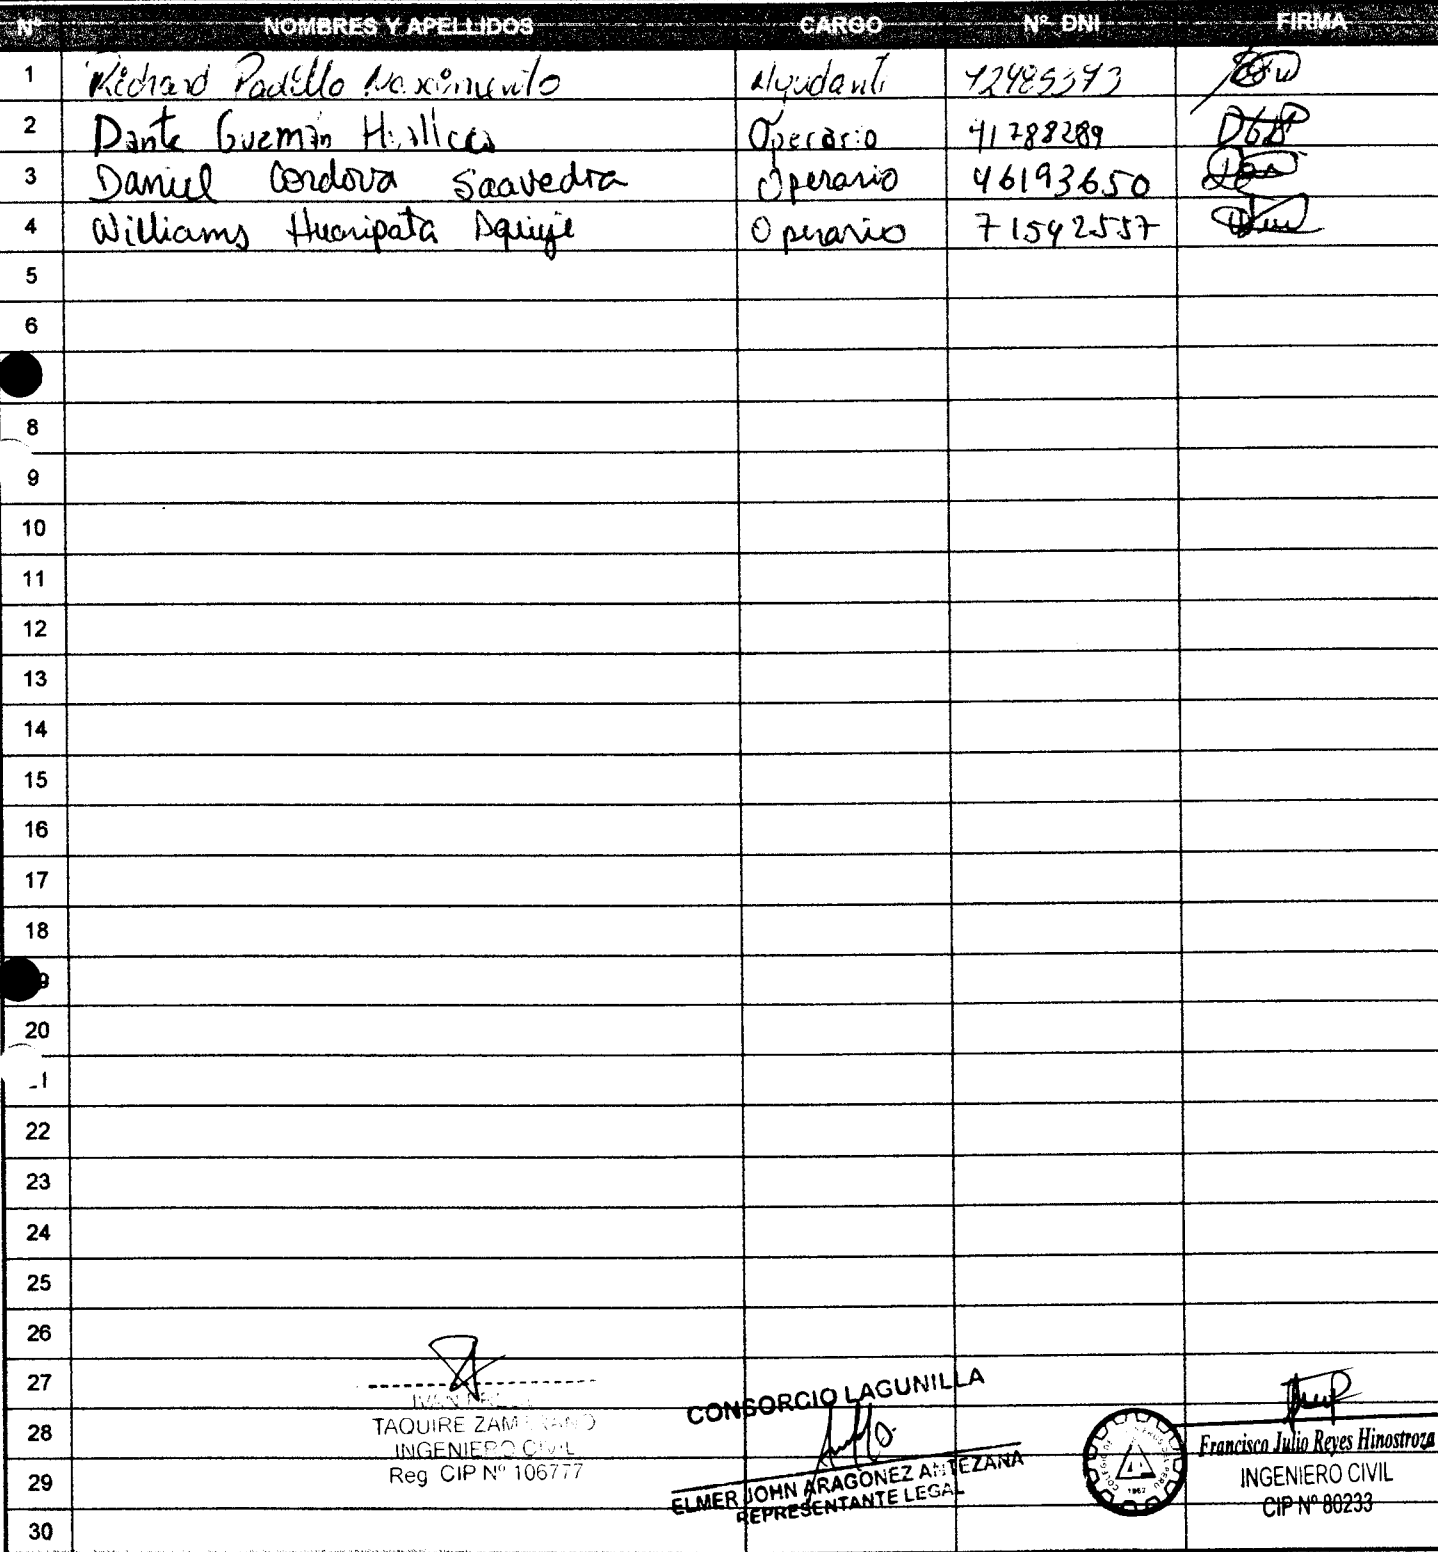 Nº NOMBRES Y APELLIDOS CARGO Nº DNI FIRMA
1 Richard Padillo Nascimento Ayudante 72485373
2 Dante Guzmán Operario 41788289
3 Daniel Cordova Saavedra Operario 46193650
4 Williams Huaripata Aquije Operario 71542557
5
6
8
9
10
11
12
13
14
15
16
17
18
9
20
1
22
23
24
25
26
27
28
29
30
IVAN
TAQUIRE
INGENIERO CIVIL
Reg CIP Nº 106777
CONSORCIO LAGUNILLA
ELMER JOHN ARAGONEZ ANTEZANA
REPRESENTANTE LEGAL
1962
Francisco Julio Reyes Hinostroza
INGENIERO CIVIL
CIP Nº 80233